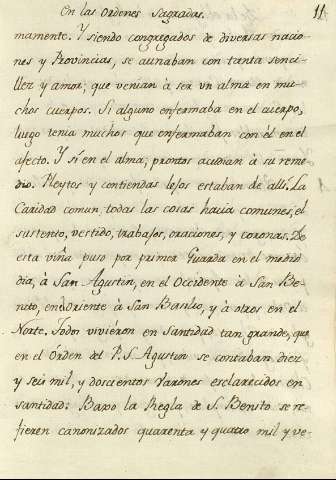 En las Ordenes Sagradas. 11
mamente. Y siendo congregados de diversas nacio-
nes y Provincias, se aunaban con tanta senci-
llez y amor, que venian à ser vn alma en mu-
chos cuerpos. Si alguno enfermaba en el cuerpo,
luego tenia muchos que enfermaban con él en el
afecto. Y si en el alma, prontos acudian à su reme
dio. Pleytos y contiendas lejos estaban de alli. La
Caridad comun, todas las cosas hacia comunes, el
sustento, vestido, trabajos, oraciones, y coronas. De
esta viña puso por primer Guarda en el medio
dia, à San Agustin, en el Occidente à San Be-
nito, en el Oriente à San Basilio, y à otros en el
Norte. Todos vivieron en santidad tan grande, que
en el Órden del P. S. Agustin se contaban diez
y seis mil, y doscientos Varones esclarecidos en
santidad: Baxo la Regla de S. Benito se re-
fieren canonizados quarenta y quatro mil y ve-